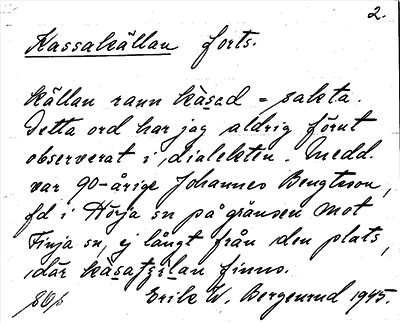 2.
Kassakällan forts.
Källan rann kàsad = sakta.
Detta ord har jag aldrig förut
observerat i dialekten. Medd.
var 90-årige Johannes Bengtsson,
fd i Hörja sn på gränsen mot
Finja sn, ej långt från den plats,
där
finns.
Erik W. Bergenrud 1945.